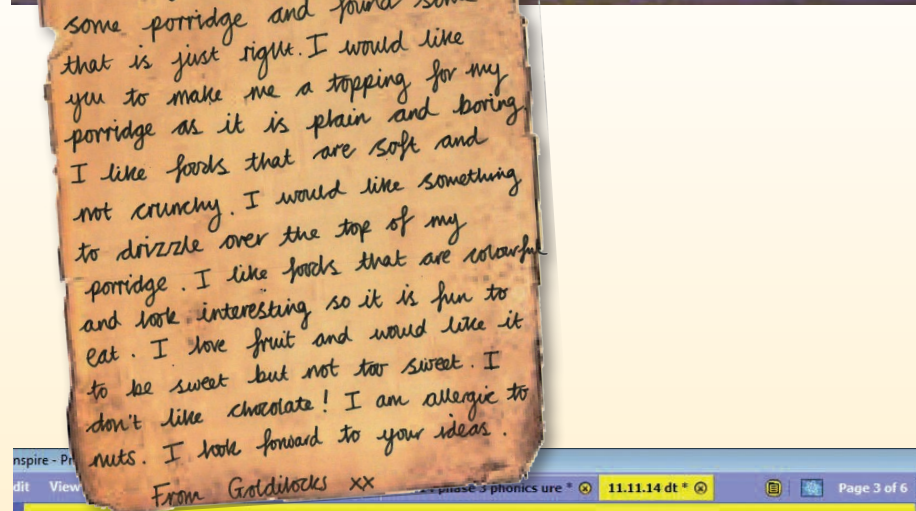 some porridge and found some
that is just right. I would like
you to make me a topping for my
porridge as it is plain and boring.
I like foods that are soft and
not crunchy. I would like something
to drizzle over the top of my
porridge. I like foods that are colourful
and look interesting so it is fun to
eat. I love fruit and would like it
to be sweet but not too sweet. I
don't like chocolate! I am allergic to
nuts. I look forward to your ideas.
From Goldilocks xx
nspire - Pr
dit View phase 3 phonics ure * 11.11.14 dt * Page 3 of 6